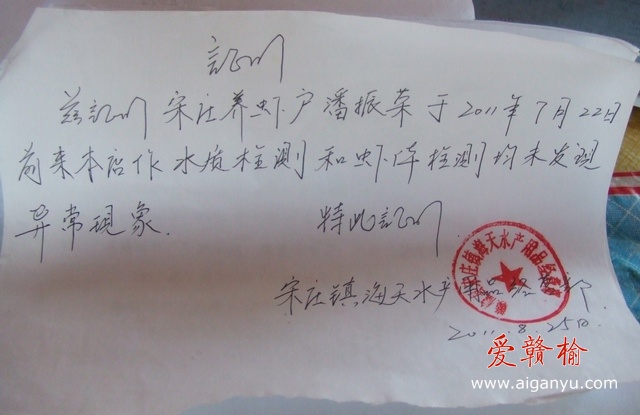 証明
兹証明 宋庄养虾户潘振荣于2011年7月22日
前来本店作水质检测和虾体检测均未发现
异常现象. 特此証明
宋庄镇海天水产用品经营部
2011.8.25日.
宋庄镇海天水产用品经营部
爱赣榆
www.aiganyu.com